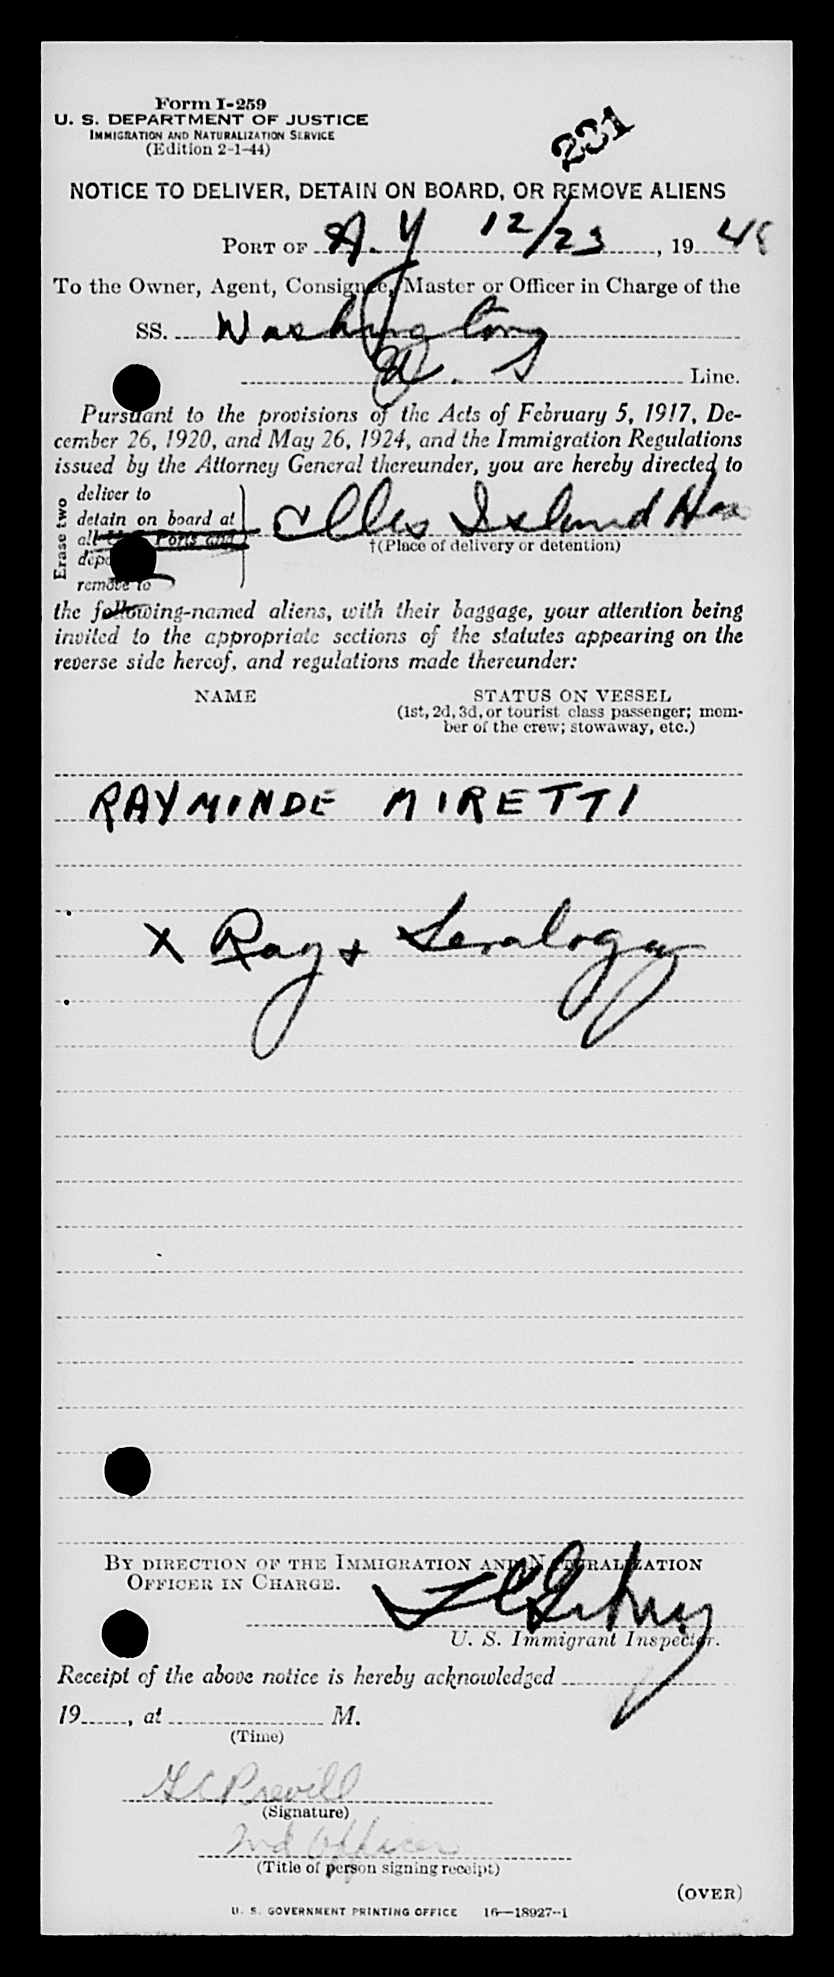 Form I-259
U. S. DEPARTMENT OF JUSTICE
IMMIGRATION AND NATURALIZATION SERVICE
(Edition 2-1-44)
231
NOTICE TO DELIVER, DETAIN ON BOARD, OR REMOVE ALIENS
PORT OF N. Y 12/23, 1948
To the Owner, Agent, Consignee, Master or Officer in Charge of the
SS. Washington
U. S Line.
Pursuant to the provisions of the Acts of February 5, 1917, De-
cember 26, 1920, and May 26, 1924, and the Immigration Regulations
issued by the Attorney General thereunder, you are hereby directed to
Erase two
deliver to
detain on board at
all Ports and
remove to
Ellis Island
†(Place of delivery or detention)
the following-named aliens, with their baggage, your attention being
invited to the appropriate sections of the statutes appearing on the
reverse side hereof, and regulations made thereunder:
NAME STATUS ON VESSEL
(1st, 2d, 3d, or tourist class passenger; mem-
ber of the crew; stowaway, etc.)
RAYMINDE MIRETTI
X Ray + Seralogy
BY DIRECTION OF THE IMMIGRATION AND NATURALIZATION
OFFICER IN CHARGE.
U. S. Immigrant Inspector.
Receipt of the above notice is hereby acknowledged
19 , at M.
(Time)
(Signature)
2nd Officer
(Title of person signing receipt)
(OVER)
U. S. GOVERNMENT PRINTING OFFICE 16—18927-1